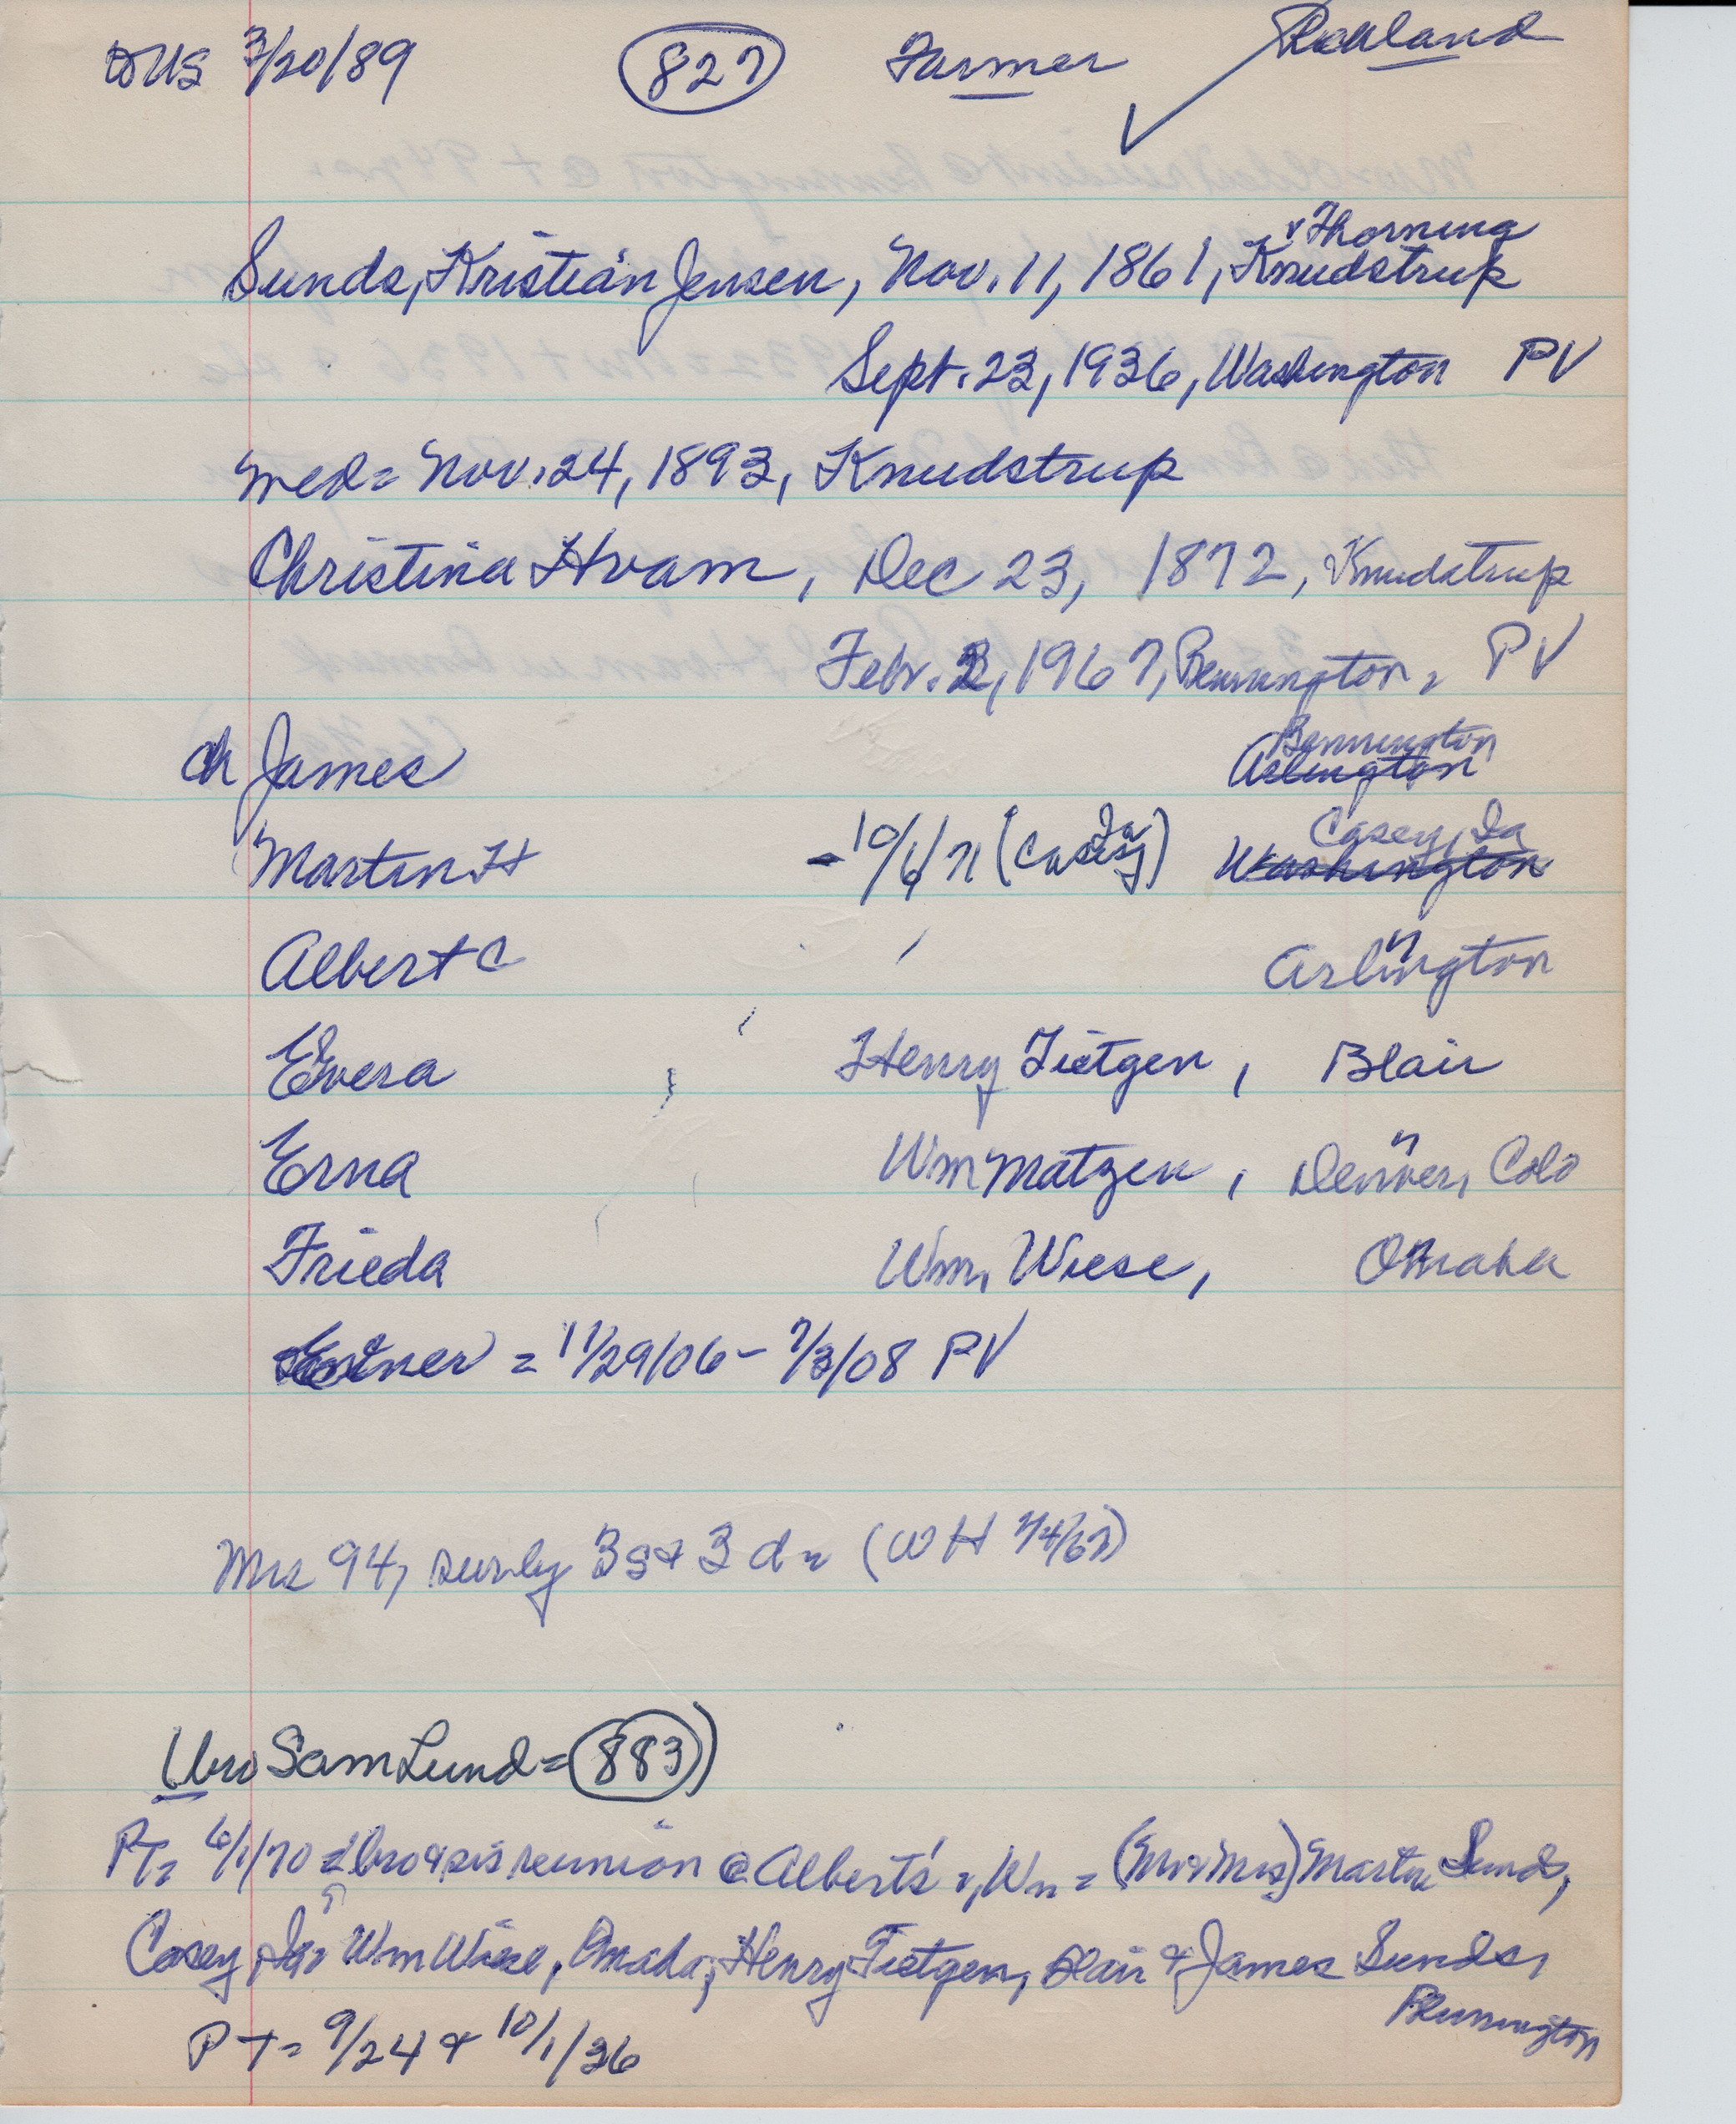 DUS 3/20/89 827 Farmer
Thorning
Sunds, Kristian Jensen, Nov. 11, 1861, Knudstrup
Sept. 23, 1936, Washington PV
med= Nov. 24, 1893, Knudstrup
Christina Hvam, Dec 23, 1872, Knudstrup
Febr. 2, 1967, Bennington, PV
Bennington
ch James Arlington
Casey, Ia
Martin H - 10/6/71 (Casey Ia) Washington
Albert C Arlington
Evera Henry Tietgen, Blair
Erna Wm Matzen, Denver, Colo
Frieda Wm. Wiese, Omaha
Einer = 11/29/06 - 7/3/08 PV
Mrs 94, survby 3 s & 3 d = (WH 7/4/67)
(bro Sam Lund = 883)
PT= 6/1/70 = bro & sis reunion @ Albert's =, Wn = (Mr & Mrs) Martin Sunds,
Casey, Ia = Wm Wiese, Omaha, Henry Tietgen, Blair & James Sunds,
Bennington
PT= 9/24 & 10/1/36